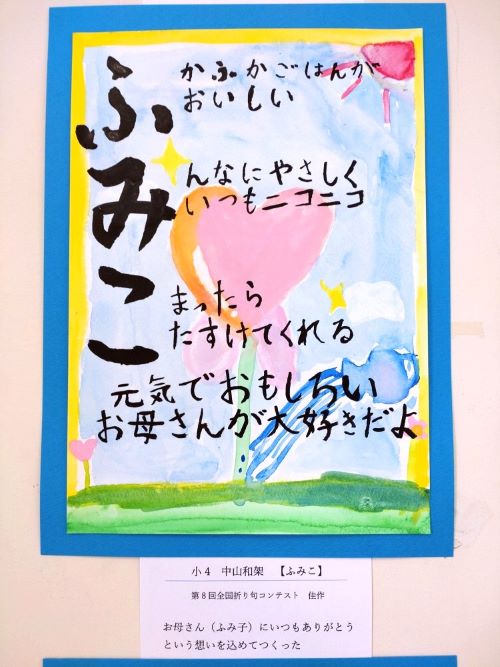 ふみこ
かふかごはんが
おいしい
んなにやさしく
いつもニコニコ
まったら
たすけてくれる
元気でおもしろい
お母さんが大好きだよ
小4　中山和架　【ふみこ】
第8回全国折り句コンテスト　佳作
お母さん（ふみ子）にいつもありがとう
という想いを込めてつくった